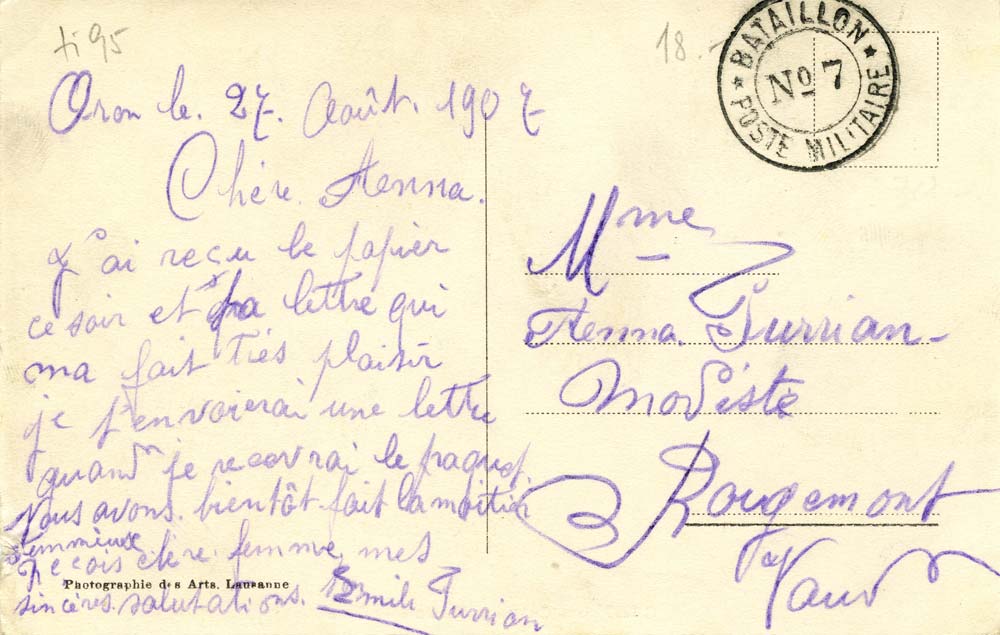 ti 95
18.-
BATAILLON
No 7
POSTE MILITAIRE
Oron le. 27. Août. 1907
Chère. Henna.
J'ai reçu le papier
ce soir et ta lettre qui
ma fait tres plaisir
je t'envoierai une lettre
quand je recevrai le paquet
Nous avons. bientôt fait la moitier
Reçois chère. femme, mes
sincères. salutations. Emile Turrian
Photographie des Arts. Lausanne
Mme
Henna. Turrian-
Modiste
Rougemont
Vaud